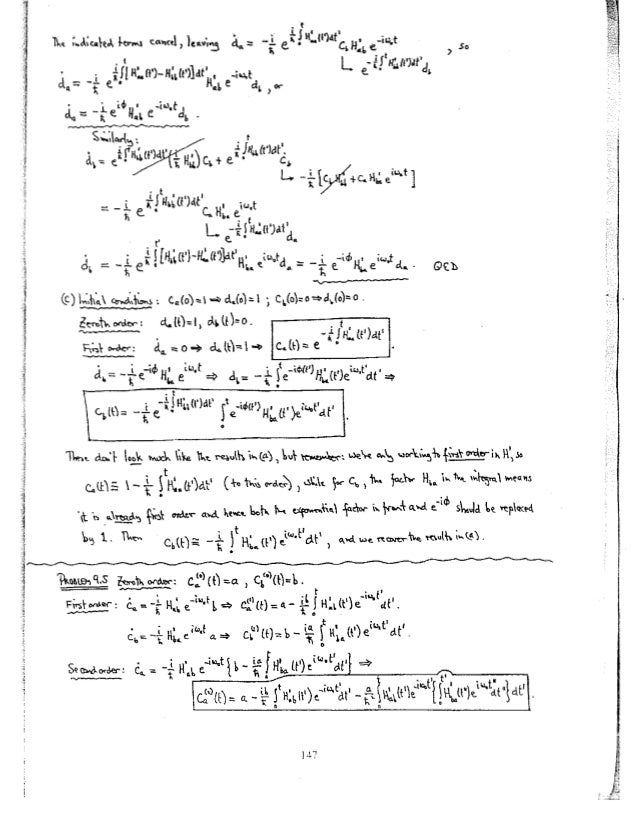 The indicated terms cancel, leaving ḋ_a = -i/ħ e^{i/ħ ∫₀ᵗ H'_aa(t')dt'} C_b H'_ab e^{-iω₀t} , so
↳ e^{-i/ħ ∫₀ᵗ H'_bb(t')dt'} d_b
ḋ_a = -i/ħ e^{i/ħ ∫₀ᵗ [H'_aa(t')-H'_bb(t')]dt'} H'_ab e^{-iω₀t} d_b , or
ḋ_a = -i/ħ e^{iφ} H'_ab e^{-iω₀t} d_b .
Similarly:
ḋ_b = e^{i/ħ ∫₀ᵗ H'_bb(t')dt'} (i/ħ H'_bb) C_b + e^{i/ħ ∫₀ᵗ H'_bb(t')dt'} Ċ_b
↳ -i/ħ [C_b H'_bb + C_a H'_ba e^{iω₀t}]
= -i/ħ e^{i/ħ ∫₀ᵗ H'_bb(t')dt'} C_a H'_ba e^{iω₀t}
↳ e^{-i/ħ ∫₀ᵗ H'_aa(t')dt'} d_a
ḋ_b = -i/ħ e^{i/ħ ∫₀ᵗ [H'_bb(t')-H'_aa(t')]dt'} H'_ba e^{iω₀t} d_a = -i/ħ e^{-iφ} H'_ba e^{iω₀t} d_a . QED
(c) Initial conditions: C_a(0)=1 ⇒ d_a(0)=1 ; C_b(0)=0 ⇒ d_b(0)=0 .
Zeroth order: d_a(t)=1, d_b(t)=0 .
First order: ḋ_a = 0 ⇒ d_a(t)=1 ⇒ C_a(t) = e^{-i/ħ ∫₀ᵗ H'_aa(t')dt'} .
ḋ_b = -i/ħ e^{-iφ} H'_ba e^{iω₀t} ⇒ d_b = -i/ħ ∫₀ᵗ e^{-iφ(t')} H'_ba(t') e^{iω₀t'} dt' ⇒
C_b(t) = -i/ħ e^{-i/ħ ∫₀ᵗ H'_bb(t')dt'} ∫₀ᵗ e^{-iφ(t')} H'_ba(t') e^{iω₀t'} dt' .
These don't look much like the results in (a), but remember: we're only working to first order in H', so
C_a(t) ≅ 1 - i/ħ ∫₀ᵗ H'_aa(t')dt' (to this order), while for C_b, the factor H_ba in the integral means
it is already first order and hence both the exponential factor in front and e^{-iφ} should be replaced
by 1. Then C_b(t) ≅ -i/ħ ∫₀ᵗ H'_ba(t') e^{iω₀t'} dt' , and we recover the results in (a).
PROBLEM 9.5 Zeroth order: C_a^{(0)}(t)=a , C_b^{(0)}(t)=b .
First order: Ċ_a = -i/ħ H'_ab e^{-iω₀t} b ⇒ C_a^{(1)}(t) = a - ib/ħ ∫₀ᵗ H'_ab(t') e^{-iω₀t'} dt' .
Ċ_b = -i/ħ H'_ba e^{iω₀t} a ⇒ C_b^{(1)}(t) = b - ia/ħ ∫₀ᵗ H'_ba(t') e^{iω₀t'} dt' .
Second order: Ċ_a = -i/ħ H'_ab e^{-iω₀t} { b - ia/ħ ∫₀ᵗ H'_ba(t') e^{iω₀t'} dt' } ⇒
C_a^{(2)}(t) = a - ib/ħ ∫₀ᵗ H'_ab(t') e^{-iω₀t'} dt' - a/ħ² ∫₀ᵗ H'_ab(t') e^{-iω₀t'} { ∫₀^{t'} H'_ba(t'') e^{iω₀t''} dt'' } dt' .
147